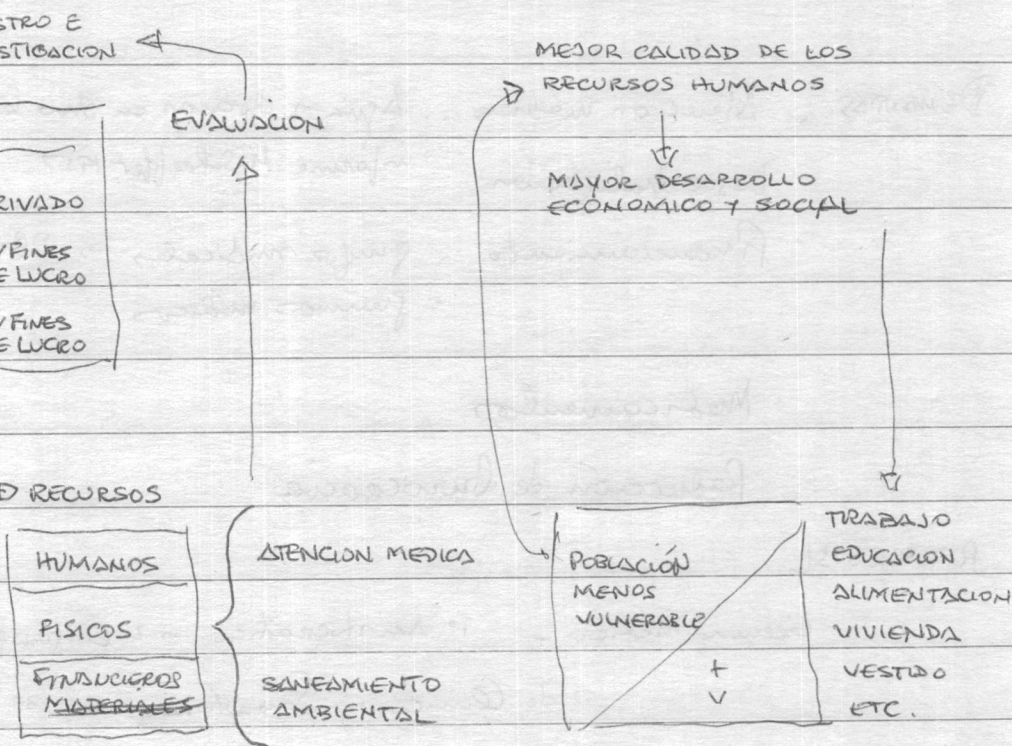 STRO E
STIGACION
EVALUACION
RIVADO
/FINES
E LUCRO
/FINES
E LUCRO
RECURSOS
HUMANOS
FISICOS
FINANCIEROS
MATERIALES
ATENCION MEDICA
SANEAMIENTO
AMBIENTAL
MEJOR CALIDAD DE LOS
RECURSOS HUMANOS
MAYOR DESARROLLO
ECONOMICO Y SOCIAL
POBLACIÓN
MENOS
VULNERABLE
+
V
TRABAJO
EDUCACION
ALIMENTACION
VIVIENDA
VESTIDO
ETC.